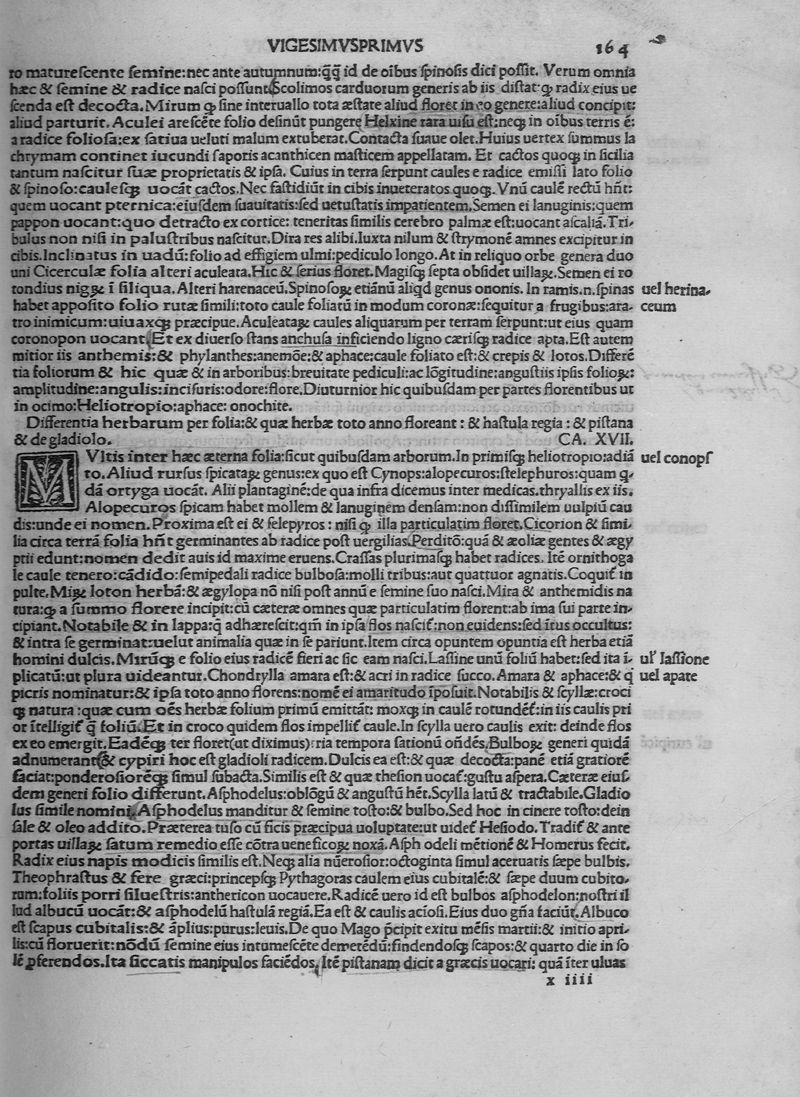 VIGESIMVSPRIMVS
164
ro matureſcente ſemine:nec ante autumnum:q̃q̃ id de oĩbus ſpinoſis dici poſſit. Verum omnia
hæc & ſemine & radice naſci poſſunt.Scolimos carduorum generis ab iis diſtat:ꝙ radix eius ue
ſcenda eſt decocta.Mirum ꝙ ſine interuallo tota æſtate aliud floret in eo genere:aliud concipit:
aliud parturit. Aculei areſcẽte folio deſinũt pungere Helxine rara uiſu eſt:neqꝫ in oĩbus terris ẽ:
a radice folioſa:ex ſatiua ueluti malum extuberat.Contacta ſuaue olet.Huius uertex ſummus la
chrymam continet iucundi ſaporis acanthicen maſticem appellatam. Et cactos quoqꝫ in ſicilia
tantum naſcitur ſuæ proprietatis & ipſa. Cuius in terra ſerpunt caules e radice emiſſi lato folio
& ſpinoſo:cauleſqꝫ uocãt cactos.Nec faſtidiũt in cibis inueteratos quoqꝫ. Vnũ caulẽ rectũ hñt:
quem uocant pternica:eiuſdem ſuauitatis:ſed uetuſtatis impatientem.Semen ei lanuginis:quem
pappon uocant:quo detracto ex cortice: teneritas ſimilis cerebro palmæ eſt:uocant aſcaliã.Tri⸗
bulus non niſi in paluſtribus naſcitur.Dira res alibi.Iuxta nilum & ſtrymonẽ amnes excipitur in
cibis.Inclinatus in uadũ:folio ad effigiem ulmi:pediculo longo.At in reliquo orbe genera duo
uni Cicerculæ folia alteri aculeata.Hic & ſerius floret.Magiſqꝫ ſepta obſidet uillaꝝ.Semen ei ro
tondius nigꝝ ĩ ſiliqua. Alteri harenaceũ.Spinoſoꝝ etiãnũ aliqd genus ononis. In ramis.n.ſpinas uel herina⸗
habet appoſito folio rutæ ſimili:toto caule foliatũ in modum coronæ:ſequitur a frugibus:ara⸗ ceum
tro inimicum:uiuaxqꝫ præcipue. Aculeataꝝ caules aliquarum per terram ſerpunt:ut eius quam
coronopon uocant.Et ex diuerſo ſtans anchuſa inficiendo ligno cæriſqꝫ radice apta.Eſt autem
mitior iis anthemis:& phylanthes:anemõe:& aphace:caule foliato eſt:& crepis & lotos.Differẽ
tia foliorum & hic quæ & in arboribus:breuitate pediculi:ac lõgitudine:anguſtiis ipſis folioꝝ:
amplitudine:angulis:inciſuris:odore:flore.Diuturnior hic quibuſdam per partes florentibus ut
in ocimo:Heliotropio:aphace: onochite.
Differentia herbarum per folia:& quæ herbæ toto anno floreant : & haſtula regia : & piſtana
& de gladiolo. CA. XVII.
MVltis inter hæc æterna folia:ſicut quibuſdam arborum.In primiſqꝫ heliotropio:adiã uel conopſ
to.Aliud rurſus ſpicataꝝ genus:ex quo eſt Cynops:alopecuros:ſtelephuros:quam q⸗
dã ortyga uocãt. Alii plantaginẽ:de qua infra dicemus inter medicas.thryallis ex iis.
Alopecuros ſpicam habet mollem & lanuginem denſam:non diſſimilem uulpiũ cau
dis:unde ei nomen.Proxima eſt ei & ſelepyros : niſi ꝙ illa particulatim floret.Cicorion & ſimi⸗
lia circa terrã folia hñt germinantes ab radice poſt uergilias.Perditõ:quã & æoliæ gentes & ægy
ptii edunt:nomen dedit auis id maxime eruens.Craſſas plurimaſqꝫ habet radices. Itẽ ornithoga
le caule tenero:cãdido:ſemipedali radice bulboſa:molli tribus:aut quattuor agnatis.Coquit̃ in
pulte.Miꝝ loton herbã:& ægylopa nõ niſi poſt annũ e ſemine ſuo naſci.Mira & anthemidis na
tura:ꝙ a ſummo florere incipit:cũ cæteræ omnes quæ particulatim florent:ab ima ſui parte in⸗
cipiant.Notabile & in lappa:q̃ adhæreſcit:qm̃ in ipſa flos naſcit̃:non euidens:ſed ĩtus occultus:
& intra ſe germinat:uelut animalia quæ in ſe pariunt.Item circa opuntem opuntia eſt herba etiã
homini dulcis.Mirũqꝫ e folio eius radicẽ fieri ac ſic eam naſci.Laſſine unũ foliũ habet:ſed ita ĩ⸗ ul̃ Iaſſione
plicatũ:ut plura uideantur.Chondrylla amara eſt:& acri in radice ſucco.Amara & aphace:& q̃ uel apate
picris nominatur:& ipſa toto anno florens:nomẽ ei amaritudo ĩpoſuit.Notabilis & ſcyllæ:croci
qꝫ natura :quæ cum oẽs herbæ folium primũ emittãt: moxqꝫ in caulẽ rotundẽt̃:in iis caulis pri
or ĩtelligit̃ q̃ foliũ.Et in croco quidem flos impellit̃ caule.In ſcylla uero caulis exit: deinde flos
ex eo emergit.Eadẽqꝫ ter floret(ut diximus):ria tempora ſationũ oñdẽs.Bulboꝝ generi quidã
adnumerant̃:& cypiri hoc eſt gladioli radicem.Dulcis ea eſt:& quæ decocta:panẽ etiã gratiorẽ
faciat:ponderoſiorẽqꝫ ſimul ſubacta.Similis eſt & quæ theſion uocat̃:guſtu aſpera.Cæteræ eiuſ
dem generi folio differunt.Aſphodelus:oblõgũ & anguſtũ hẽt.Scylla latũ & tractabile.Gladio
lus ſimile nomini.Aſphodelus manditur & ſemine toſto:& bulbo.Sed hoc in cinere toſto:dein
ſale & oleo addito.Præterea tuſo cũ ficis præcipua uoluptate:ut uidet̃ Heſiodo.Tradit̃ & ante
portas uillaꝝ ſatum remedio eſſe cõtra ueneficoꝝ noxã.Aſph odeli mẽtionẽ & Homerus fecit.
Radix eius napis modicis ſimilis eſt.Neqꝫ alia nũeroſior:octoginta ſimul aceruatis ſæpe bulbis.
Theophraſtus & fere græci:princepſqꝫ Pythagoras caulem eius cubitalẽ:& ſæpe duum cubito⸗
rum:foliis porri ſilueſtris:anthericon uocauere.Radicẽ uero id eſt bulbos aſphodelon:noſtri il
lud albucũ uocãt:& aſphodelũ haſtulã regiã.Ea eſt & caulis acioſi.Eius duo gña faciũt.Albuco
eſt ſcapus cubitalis:& ãplius:purus:leuis.De quo Mago p̃cipit exitu mẽſis martii:& initio apri⸗
lis:cũ floruerit:nõdũ ſemine eius intumeſcẽte demetẽdũ:findendoſqꝫ ſcapos:& quarto die in ſo
lẽ ꝓferendos.Ita ſiccatis manipulos faciẽdos.Itẽ piſtanam dicit a græcis uocari: quã ĩter uluas
x iiii